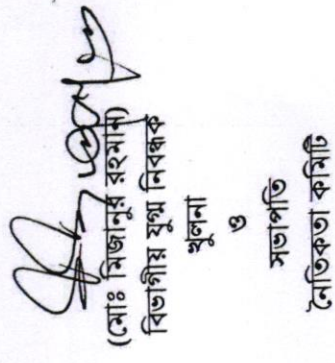 (মোঃ মিজানুর রহমান)
বিভাগীয় যুগ্ম নিবন্ধক
খুলনা
ও
সভাপতি
নৈতিকতা কমিটি